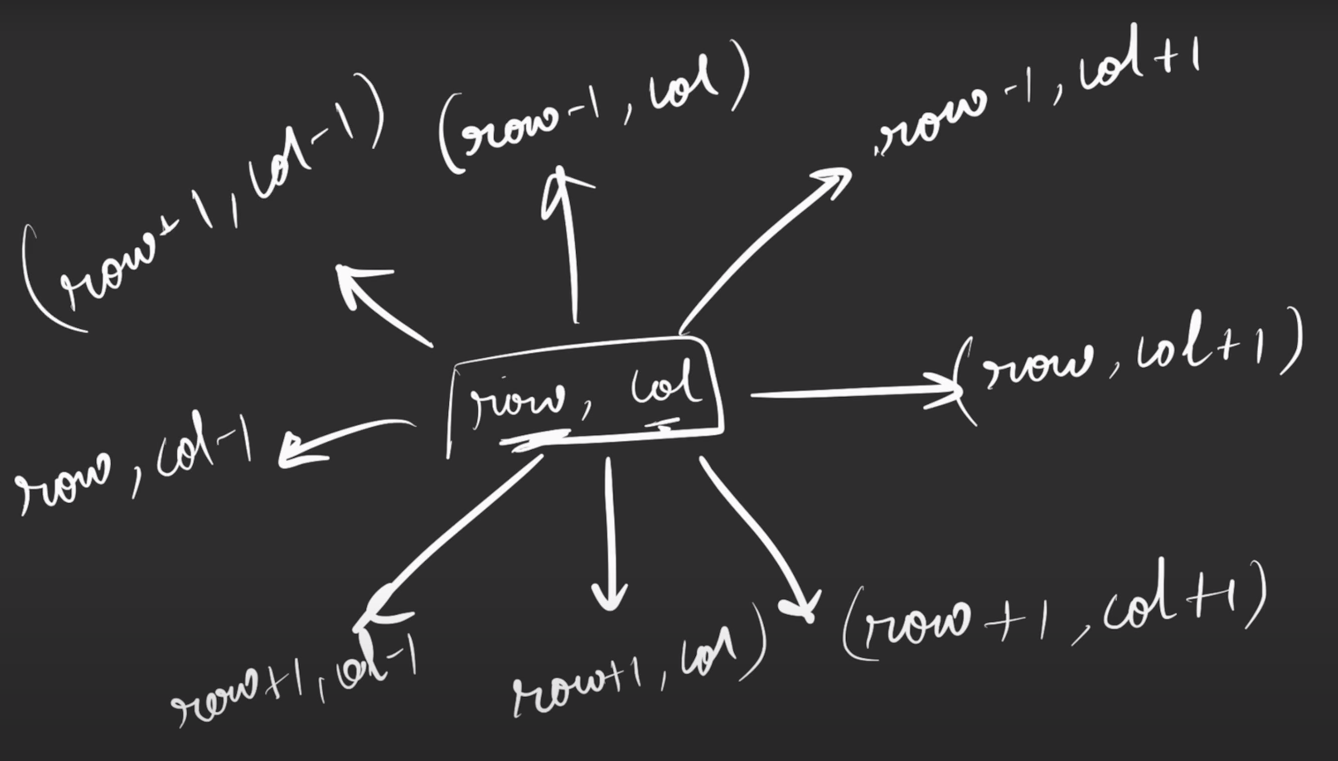 (row+1, col-1)
(row-1, col)
row-1, col+1
row, col
(row, col+1)
row, col-1
row+1, col-1
row+1, col)
(row+1, col+1)